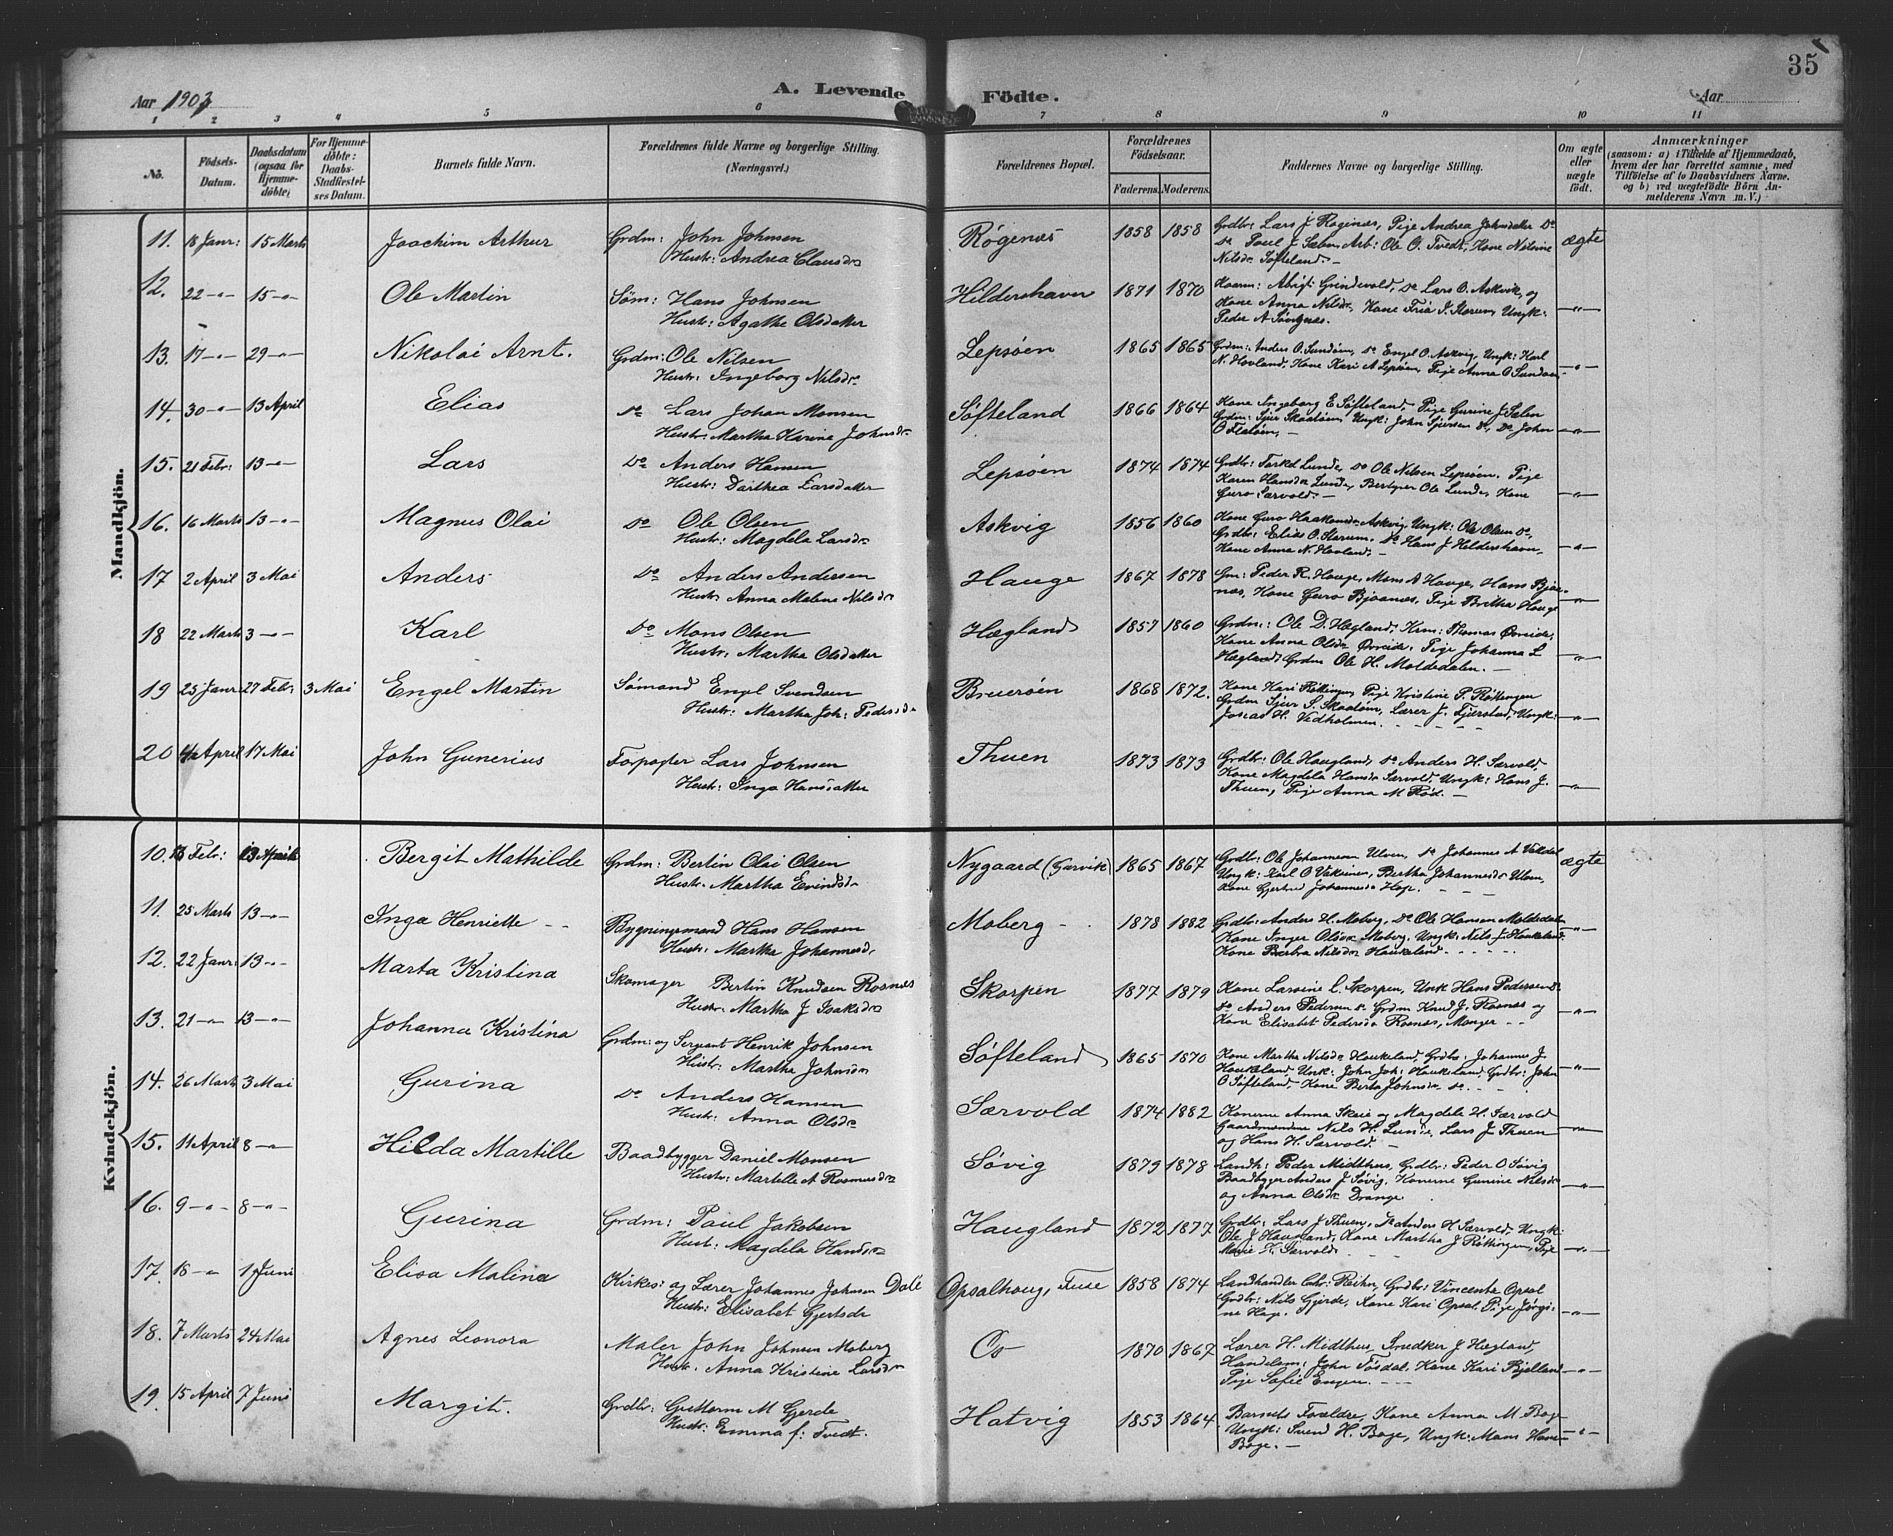 35
Aar 1903
A. Levende Födte.
Aar
1 2 3 4 5 6 7 8 9 10 11
No.
Födsels-Datum.
Daabsdatum (ogsaa for Hjemmedöbte)
For Hjemmedöbte: Daabs-Stadfæstelses Datum.
Barnets fulde Navn.
Forældrenes fulde Navne og borgerlige Stilling. (Næringsvei.)
Forældrenes Bopæl.
Forældrenes Födselsaar.
Faderens. Moderens.
Faddernes Navne og borgerlige Stilling.
Om ægte eller uægte født.
Anmærkninger
(saasom: a) i Tilfælde af Hjemmedaab, hvem der har forrettet samme, med Tilföielse af to Daabsvidners Navne. og b) ved uægtefödte Börn Anmelderens Navn m. V.)
Mandkjön.
11. 18 Janr: 15 Marts Joachim Arthur Grdm: John Johnsen Røgenæs 1858 1858 Grdbr: Lars J. Røgenæs, Pige Andrea Johnsdatter Do ægte
Hustr: Andrea Clausdr Do Poul J. Sælen, Arb: Ole O. Tvedt, Kone
Nilsdr Søfteland. —
12. 22 -"- 15 -"- Ole Martin Søm: Hans Johnsen Hildershavn 1871 1870 Grindevold, Do Lars O. Askvik, og -"-
Hustr: Agathe Olsdatter Kone Anna Nilsdr, Kone J. Ungk:
Peder A
13. 17 -"- 29 -"- Nikolai Arnt. Grdm: Ole Nilsen Lepsøen 1865 1865 Grdm: Anders O. Sundøen, Do Engel O. Askvig, Ungk: Karl -"-
Hustr: Ingeborg Nilsdr N. Hovland, Kone Kari A Lepsøen, Pige Anna O Sundøen
14. 30 -"- 13 April Elias Do Lars Johan Monsen Søfteland 1866 1864 Kone Ingeborg E Søfteland, Pige Gurine J. Sælen -"-
Hustr: Martha Karine Johnsdr Grdm: Sjur Skaatøen, Ungk: John Sjursen Do, Do John
O Fløtøen, —
15. 21 Febr: 13 -"- Lars Do Anders Hansen Lepsøen 1874 1874 Grdbr: Torkel Lunde, Do Ole Nilsen Lepsøen. Pige -"-
Hustr: Dorthea Larsdatter Karen Hansdr Lunde, Ole Lunde, Kone
Guro Særvold. —
16. 16 Marts 13 -"- Magnus Olai Do Ole Olsen Askvig 1856 1860 Kone Guro Haakonsdr Askvig, Ungk: Ole Olsen Do, -"-
Hustr: Magdela Larsdr Grdbr: Elias O. Do Hans J Heldershavn,
Kone Anna N. Hovland. —
17 2 April 3 Mai Anders Do Anders Andersen Hauge 1867 1878 Gm: Peder R. Hauge, Mons A Hauge, Hans Bjor- -"-
Hustr. Anna Malene Nilsdr næs, Kone Guro Bjornæs, Pige Britha Hauge
18 22 Marts 3 -"- Karl Do Mons Olsen Hægland 1857 1860 Grdm: Ole D. Hægland, Krm: Thomas Øvreide, -"-
Hustr: Martha Olsdatter Kone Anna Olsdr Øvreide, Pige Johanna L
Hægland, Grdm Ole H. Moldedalen. —
19 25 Janr 27 Febr: 3 Mai Engel Martin Sømand Engel Svendsen Bruerøen 1868 1872. Kone Kari Røttingen, Pige Kristine P. Røttingen -"-
Hustr: Martha Joh: Pedersdr Grdm Sjur S. Skaatøen, Lærer J. Fjerstad, Ungk:
Josias H. Vedholmen. — — —
20 April 17 Mai John Gunerius Forpagter Lars Johnsen Thuen 1873 1873 Grdbr: Ole Haugland, Do Anders H. Særvold, -"-
Hustr: Inga Hansdatter Kone Magdela Hansdr Særvold, Ungk: Hans J.
Thuen, Pige Anna M. Rød. —
Kvindekjön.
10. 13 Febr: 13 April Bergit Mathilde Grdm: Bertin Olai Olsen Nygaard (Gjervik) 1865 1867 Grdbr: Ole Johannesen Ulven, Do Johannes A Veldal ægte
Hustr: Martha Eivindsdr Ungk: Karl O Bertha Johannesdr Ulven,
Kone Gjertrud Johannesdr Hage. - - -
11. 25 Marts 13 -"- Inga Henriette Bygningsmand Hans Hansen Moberg 1878 1882 Grdbr: Anders H. Moberg, Do Ole Hansen Moldedalen -"-
Hustr: Martha Johannesd. Kone Inger Olsdr Moberg, Ungk: Nils J. Haukeland,
Kone Barbra Nilsdr Haukeland. - - -
12. 22 Janr: 13 -"- Marta Kristina Skomager Bertin Knudsen Rosnæs Skorpen 1877 1879 Kone Larsine L. Skorpen, Unk Hans Pedersen Do -"-
Hustr: Martha J Isaksdr Do Anders Pedersen Do Grdm Knud J. Rosnæs og
Kone Elisabet Pedersdr Rosnæs, Manger - -
13. 21 -"- 13 -"- Johanna Kristina Grdm: og Sergeant Henrik Johnsen Søfteland 1865 1870 Kone Martha Nilsdr Haukeland, Grdbr: Johannes J. -"-
Hustr: Martha Johnsdr Haukeland, Unk: John Joh: Haukeland, Grdbr: John
O Søfteland, Kone Berta Johnsdr Do. - -
14. 26 Marts 3 Mai Gurina Do Anders Hansen Særvold 1874 1882 Konerne Anna Skeie og Magdela H. Særvold -"-
Hustr: Anna Olsdr Gaardmændene Nils H. Lunde, Lars J. Thuen
og Hans H. Særvold. —
15. 11 April 8 -"- Hilda Martille Baadbygger Daniel Monsen Søvig 1879 1878 Landh: Peder Midthus, Grdbr: Peder O Søvig -"-
Hustr: Martille A Rasmusdr Baadbygger Anders J. Søvig, Konerne Gurine Nilsdr
og Anna Olsdr Drange.
16. 9 -"- 8 -"- Gurina Grdm: Poul Jakobsen Haugland 1872 1877 Grdbr: Lars J. Thuen, Do Anders H Særvold, Ungk: -"-
Hust: Magdela Hansdr Ole J. Haugland, Kone Martha J Røttingen, Pige
Marie H. Særvold.
17. 18 -"- 1 Juni Elisa Malina Kirkes: og Lærer Johannes Johnsen Dale Opsalhoug, Fuse 1858 1874 Landhandler Chr: Reihn, Grdbr: Vincente Opsal -"-
Hustr: Elisabet Gjertsdr Grdbr: Nils Gjerde, Kone Kari Opsal, Pige Jørgi-
ne Hage.
18. 7 Marts 24 Mai Agnes Leonora Maler John Johnsen Moberg Os 1870 1867 Lærer H. Midthus, Snedker J Hegland, -"-
Hust. Anna Kristine Larsdr Handelsm: John Tøsdal, Kone Kari Bjelland
Pige Sofie Engen.
19. 15 April 7 Juni Margit. Grdbr: Guttorm M Gjerde Hatvig 1853 1864 Barnets Forældre, Kone Anna M. Boge -"-
Hustr: Emma f: Tvedt. Ungk: Svend H. Boge, Ungk: Mons
Boge. —